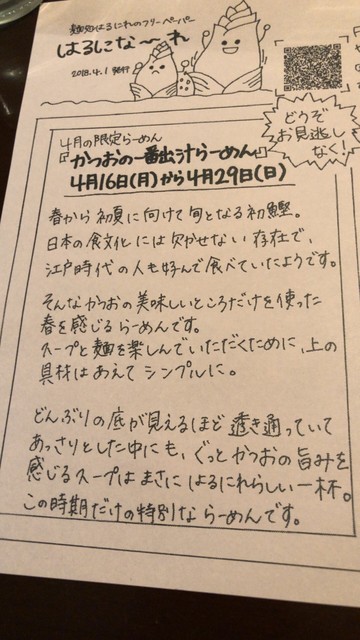 麺処はるにれのフリーペーパー
はるにな〜れ
2018.4.1 発行
どうぞ
お見逃し
なく!
4月の限定らーめん
『かつおの一番出汁らーめん』
4月16日(月)から4月29日(日)
春から初夏に向けて旬となる初鰹。
日本の食文化には欠かせない存在で、
江戸時代の人も好んで食べていたようです。
そんなかつおの美味しいところだけを使った
春を感じるらーめんです。
スープと麺を楽しんでいただくために、上の
具材はあえてシンプルに。
どんぶりの底が見えるほど透き通っていて
あっさりとした中にも、ぐっとかつおの旨みを
感じるスープはまさにはるにれらしい一杯。
この時期だけの特別ならーめんです。